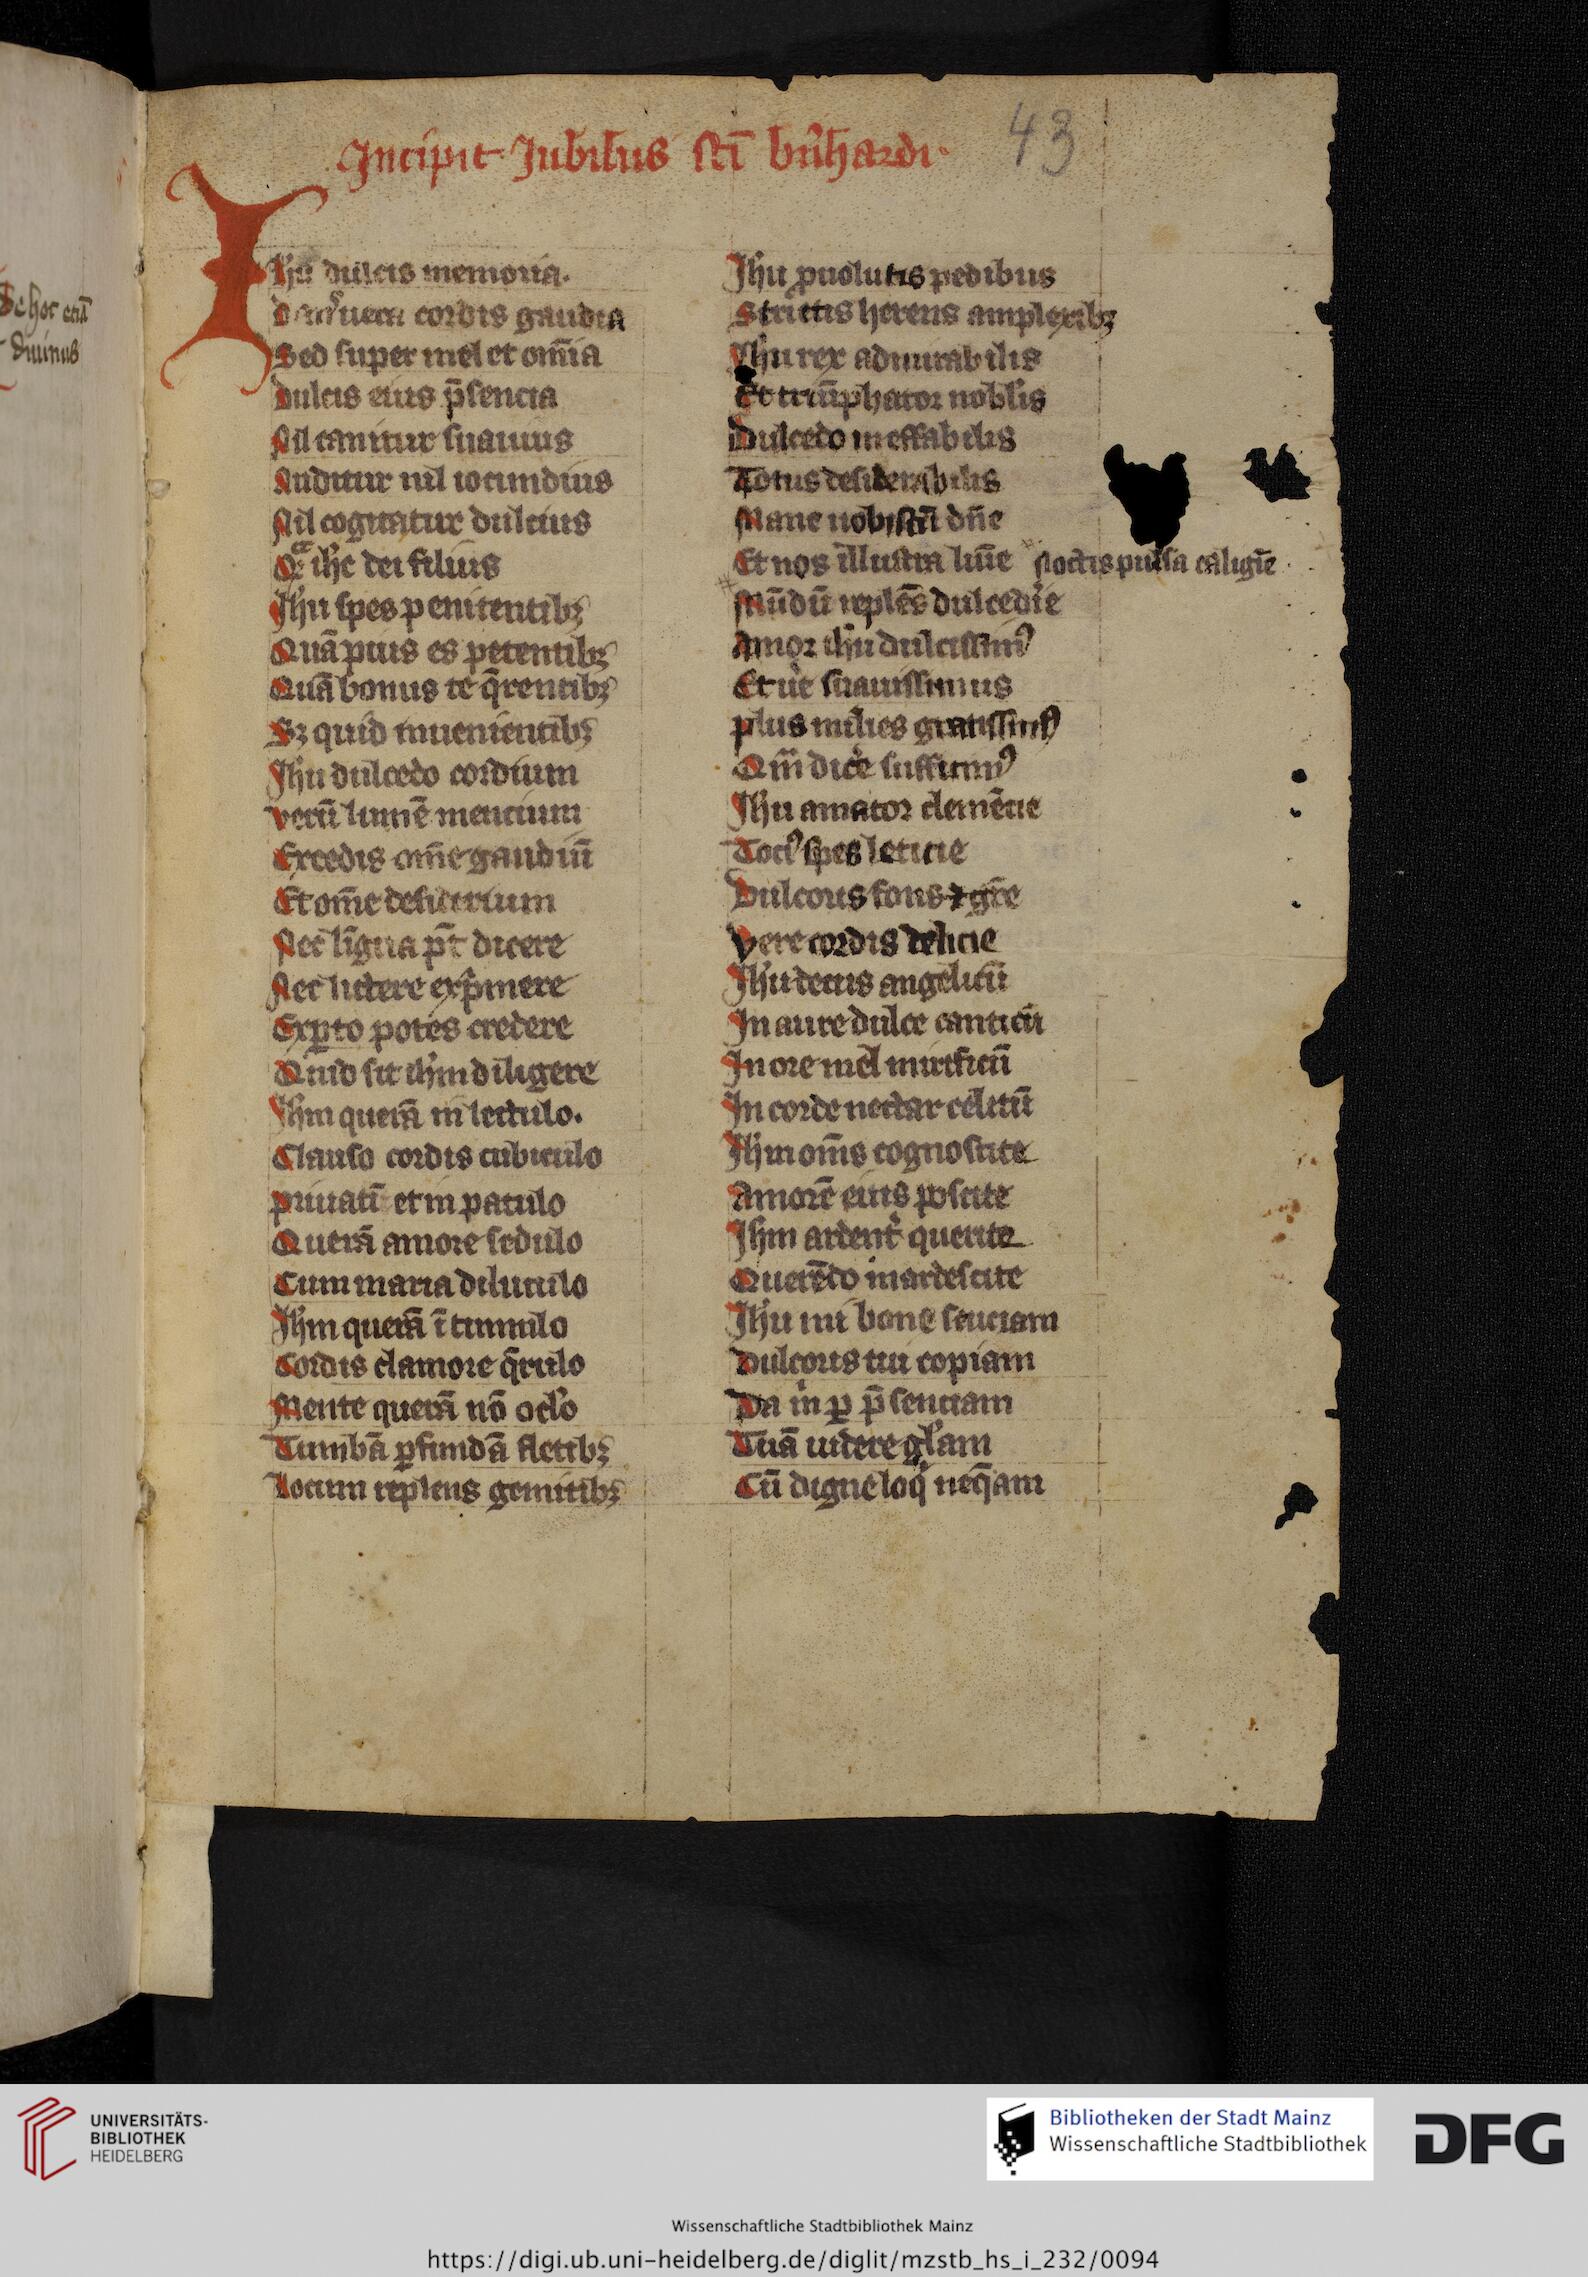 Incipit Jubilus sc̄i bn̄hardi·
43
Ihū dulcis memoria.
Dans uera cordis gaudia
Sed super mel et om̄ia
Dulcis eius p̄sencia
Nil canitur suauius
Auditur nil iocundius
Nil cogitatur dulcius
ih̄c dei filius
Jhū spes penitentibꝫ
Quā pius es petentibꝫ
Quā bonus te q̄rentibꝫ
Sꝫ quid inuenientibꝫ
Jhū dulcedo cordium
verū lumē mencium
Excedis om̄e gaudiū
Et om̄e desiderium
Nec līgua pōt dicere
Nec littere exp̄mere
Exꝑto potes credere
Quid sit ih̄m diligere
Jh̄m querā in lectulo.
Clauso cordis cubiculo
priuatī et in patulo
Querā amore sedulo
Cum maria diluculo
Jh̄m querā ī tumulo
Cordis clamore q̄rulo
Mente querā nō oc̄lo
Tumbā ꝑfundā fletibꝫ
Locum replens gemitibꝫ
Jhū prouolutis pedibus
Strictis herens amplexibꝫ
Jhū rex admirabilis
Et triūphator nobl̄is
Dulcedo ineffabilis
Totus desiderabilis
Mane nobiscū dn̄e
Et nos illustra lum̄e
Noctis pulsa caligīe
Mūdū replēs dulcedīe
Amor ih̄u dulcissimꝰ
Et ue᷑ suauissimus
plus milies gratissimꝰ
Qm̄ dice᷑ suffitimꝰ
Jhū amator clemēcie
Tociꝰ spes leticie
Dulcoris fons ⁊ gr̄e
Vere cordis delicie
Jhū decus angelicū
In aure dulce canticū
In ore mel mirificū
In corde nectar celicū
Jh̄m om̄s cognoscite
Amorē eius poscite
Jh̄m ardent᷑ querite
Querēdo inardescite
Jhū mi bone senciam
Dulcoris tui copiam
Da m̄ ꝑ p̄senciam
Tuā uidere gl̄am
Cū digne loqi neq̄am
De hoc eciā
diuinus
UNIVERSITÄTS-
BIBLIOTHEK
HEIDELBERG
Bibliotheken der Stadt Mainz
Wissenschaftliche Stadtbibliothek
DFG
Wissenschaftliche Stadtbibliothek Mainz
https://digi.ub.uni-heidelberg.de/diglit/mzstb_hs_i_232/0094